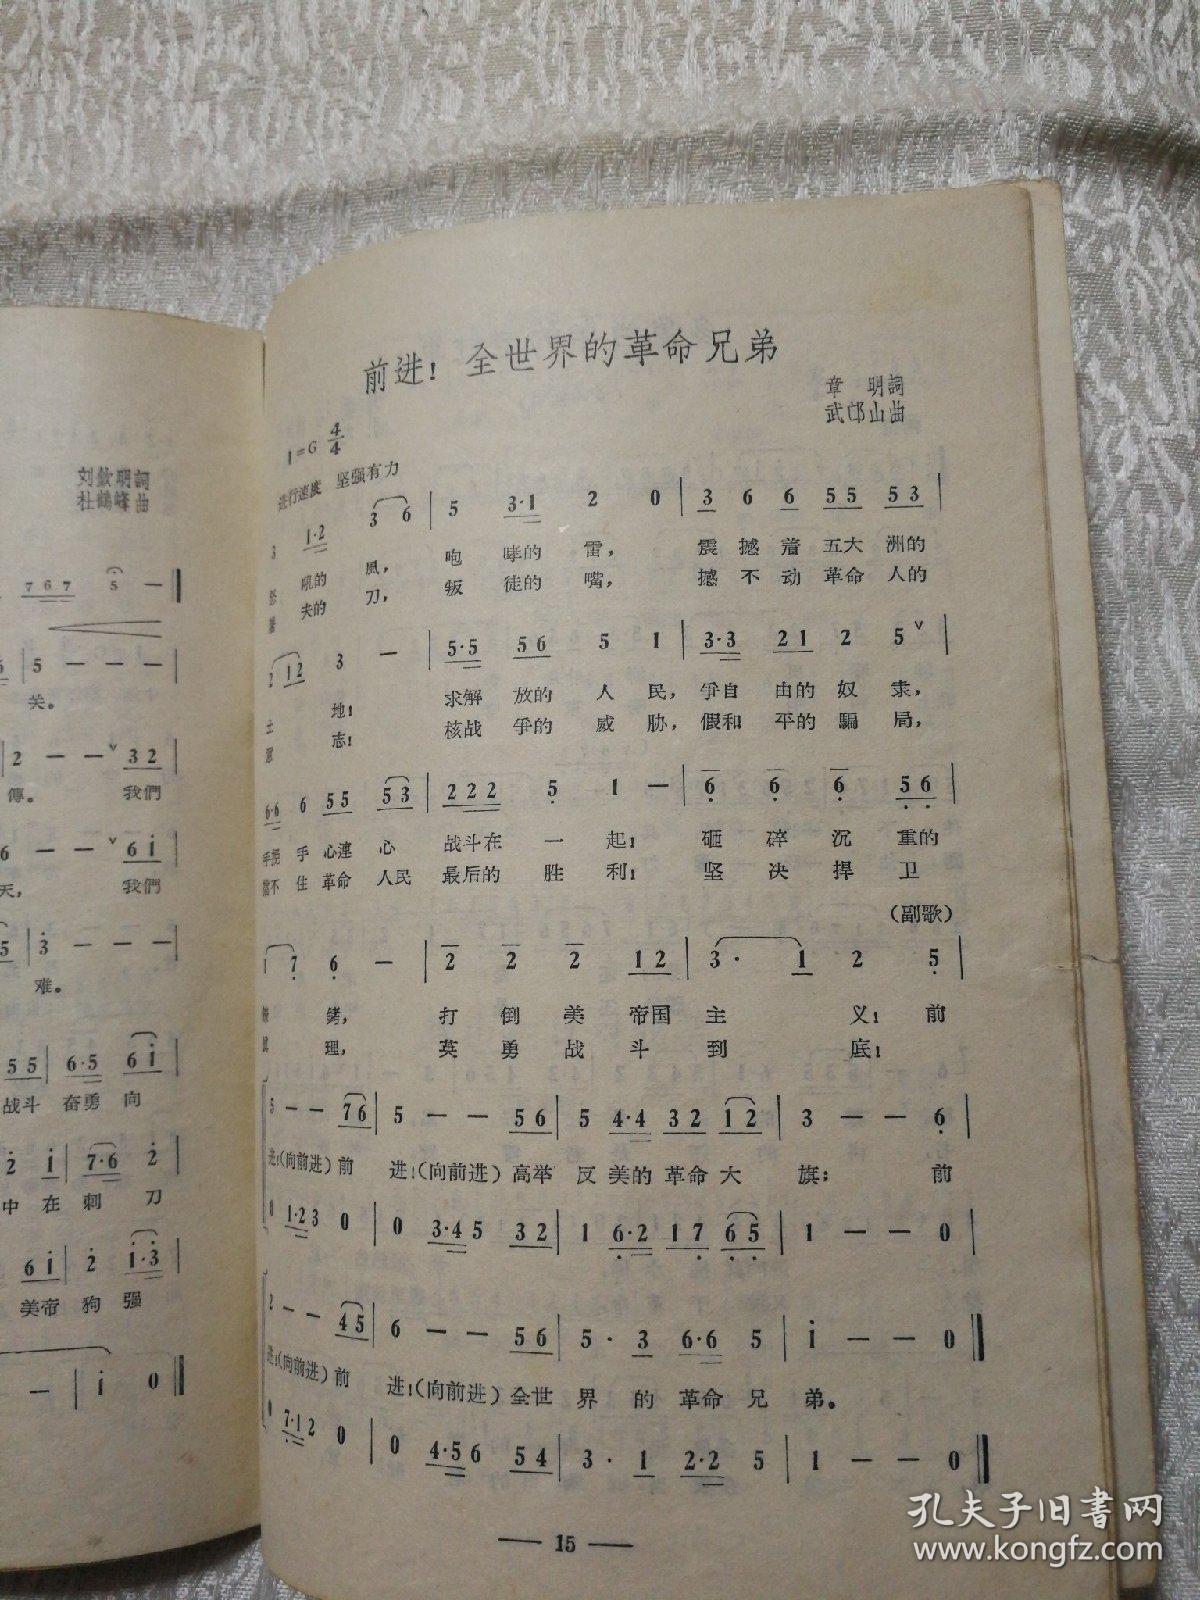 刘欽明詞
杜鶴峰曲
7 6 7 5 —
5 — — —
关。
2 — — ∨ 3 2
傳。 我們
6 — — ∨ 6 i
天， 我們
5 3 — —
难。
5 5 6·5 6 i
战斗 奋勇 向
2 i 7·6 2
中 在 刺 刀
6 i 2 i·3
美帝 狗 强
— i 0
前进！全世界的革命兄弟
章 明詞
武邙山曲
1=G 4/4
进行速度 坚强有力
3 1·2 3 6 | 5 3·1 2 0 | 3 6 6 5 5 5 3 |
吼的 風， 咆 哮的 雷， 震 撼 着 五大 洲的
夫的 刀， 叛 徒的 嘴， 撼 不 动 革命 人的
2 1 2 3 — | 5·5 5 6 5 1 | 3·3 2 1 2 5 ∨ |
土 地！ 求解 放的 人 民，争自 由的 奴 隶，
志！ 核战 争的 威 胁，假和 平的 騙 局，
6·6 6 5 5 5 3 | 2 2 2 5 1 — | 6 6 6 5 6 |
手挽 手 心連 心 战斗在 一 起！ 砸 碎 沉 重的
擋不 住 革命 人民 最后的 胜 利！ 坚 决 捍 卫
（副歌）
1 7 6 — | 2 2 2 1 2 | 3· 1 2 5 |
銬， 打 倒 美 帝国 主 义！前
理， 英 勇 战 斗 到 底！
5 — — 7 6 | 5 — — 5 6 | 5 4·4 3 2 1 2 | 3 — — 6 |
进！（向前进）前 进！（向前进）高举 反 美的 革命 大 旗； 前
0 1·2 3 0 | 0 3·4 5 3 2 | 1 6·2 1 7 6 5 | 1 — — 0 |
2 — — 4 5 | 6 — — 5 6 | 5· 3 6·6 5 | i — — 0 ‖
进！（向前进）前 进！（向前进）全世 界 的 革命 兄 弟。
0 7·1 2 0 | 0 4·5 6 5 4 | 3· 1 2·2 5 | 1 — — 0 ‖
— 15 —
孔夫子旧书网
www.kongfz.com